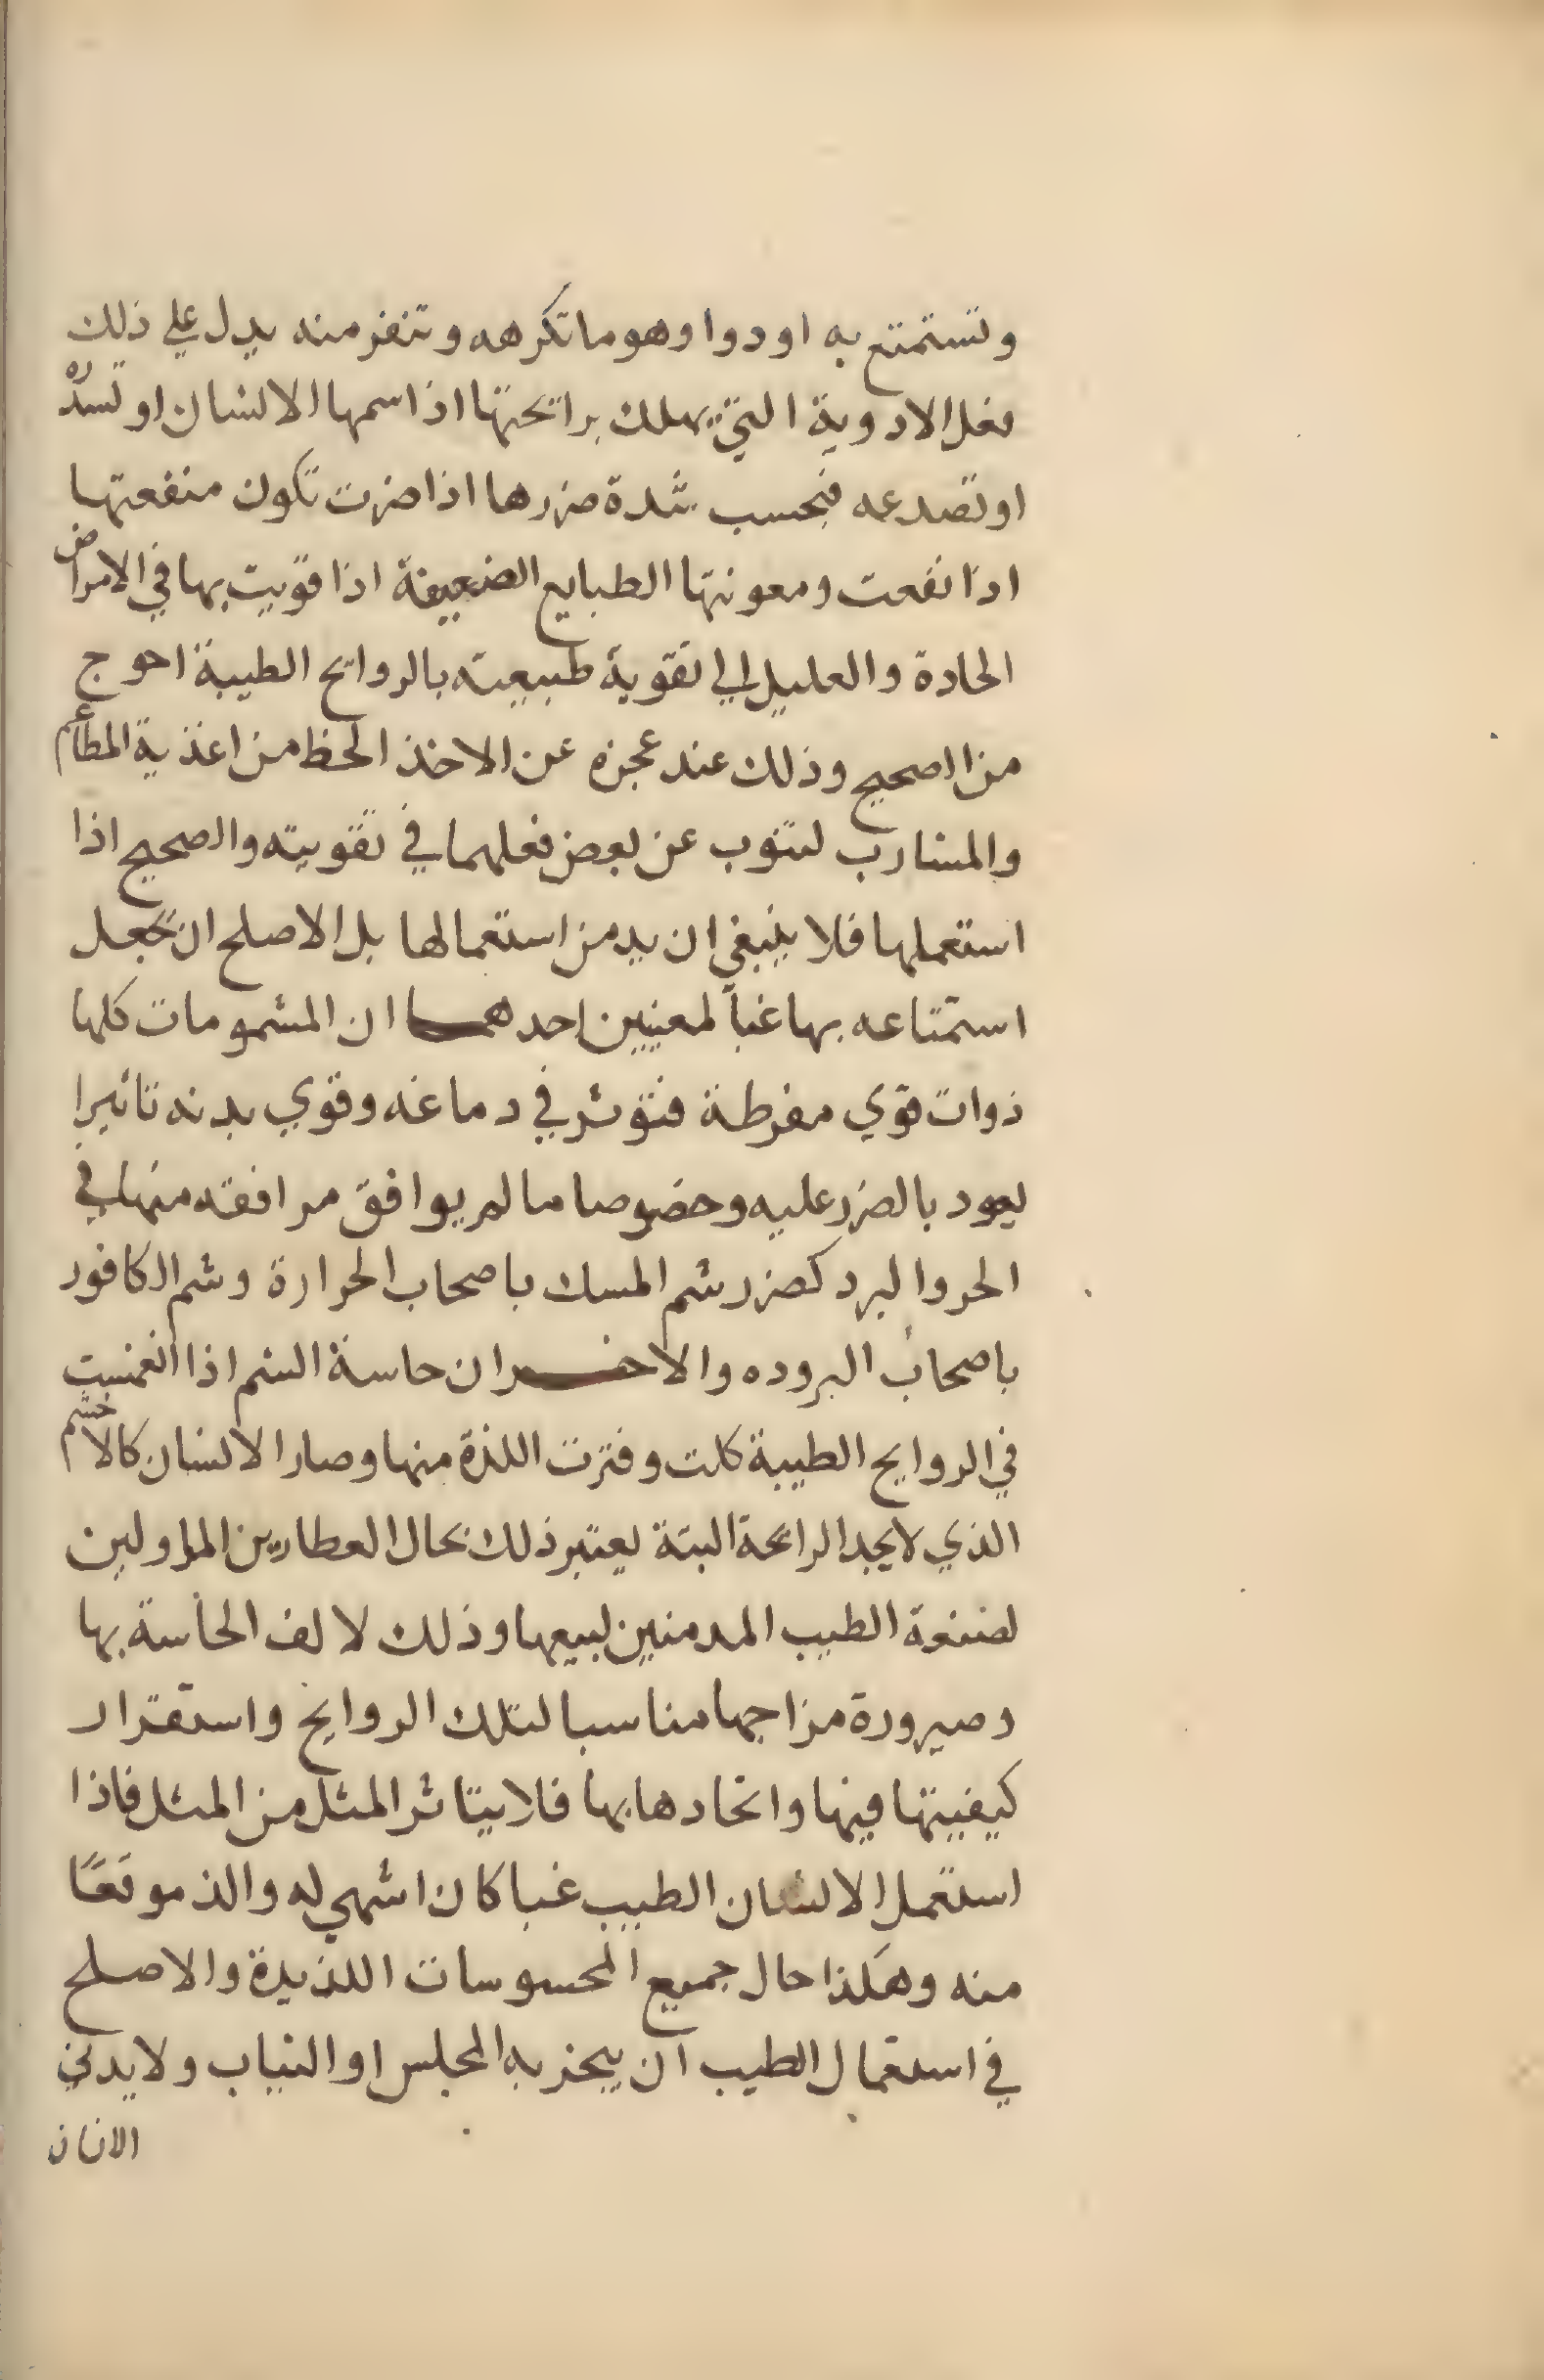 وتستمتع به او دوا وهو ما تكرهه وتنفر منه يدل علي ذلك
فعل الادوية التي يهلك براتحتها اذا سمها الانسان او تسدره
او تصدعه فبحسب شدة ضررها اذا ضرت تكون منفعتها
اذا نفعت ومعونتها الطبايع الضعيفة اذا قويت بها في الامراض
الحادة والعليل الي تقوية طبيعته بالرواتح الطيبة احوج
من الصحيح وذلك عند عجزه عن الاخذ الحظ من اغذية المطاعم
والمشارب لتنوب عن بعض فعلهما في تقويته والصحيح اذا
استعملها فلا ينبغي ان يدمن استعمالها بل الاصلح ان يجعل
استمتاعه بها غباً لمعنيين احدهما ان المشمومات كلها
ذوات قوي مفرطة فتؤثر في دماغه وقوي بدنه تاثيرا
يعود بالضرر عليه وخصوصا ما لم يوافق مرافقه منها في
الحر والبرد كضرر شم المسك باصحاب الحرارة وشم الكافور
باصحاب البروده والاخر ان حاسة الشم اذا انغمست
في الروايح الطيبة كلت وفترت اللذة منها وصار الانسان كالاخشم
الذي لا يجد الراتحة البتة يعتبر ذلك بحال العطارين المزاولين
لصنعة الطيب المدمنين لبيعها وذلك لالف الحاسة بها
وصيرورة مزاجها مناسبا لتلك الروايح واستقرار
كيفيتها فيها واتحادها بها فلا يتاثر المثل من المثل فاذا
استعمل الانسان الطيب غبا كان اشهي له والذ موقعًا
منه وهكذا حال جميع المحسوسات اللذيذة والاصلح
في استعمال الطيب ان يبخر به المجلس او الثياب ولا يدني
الانسان